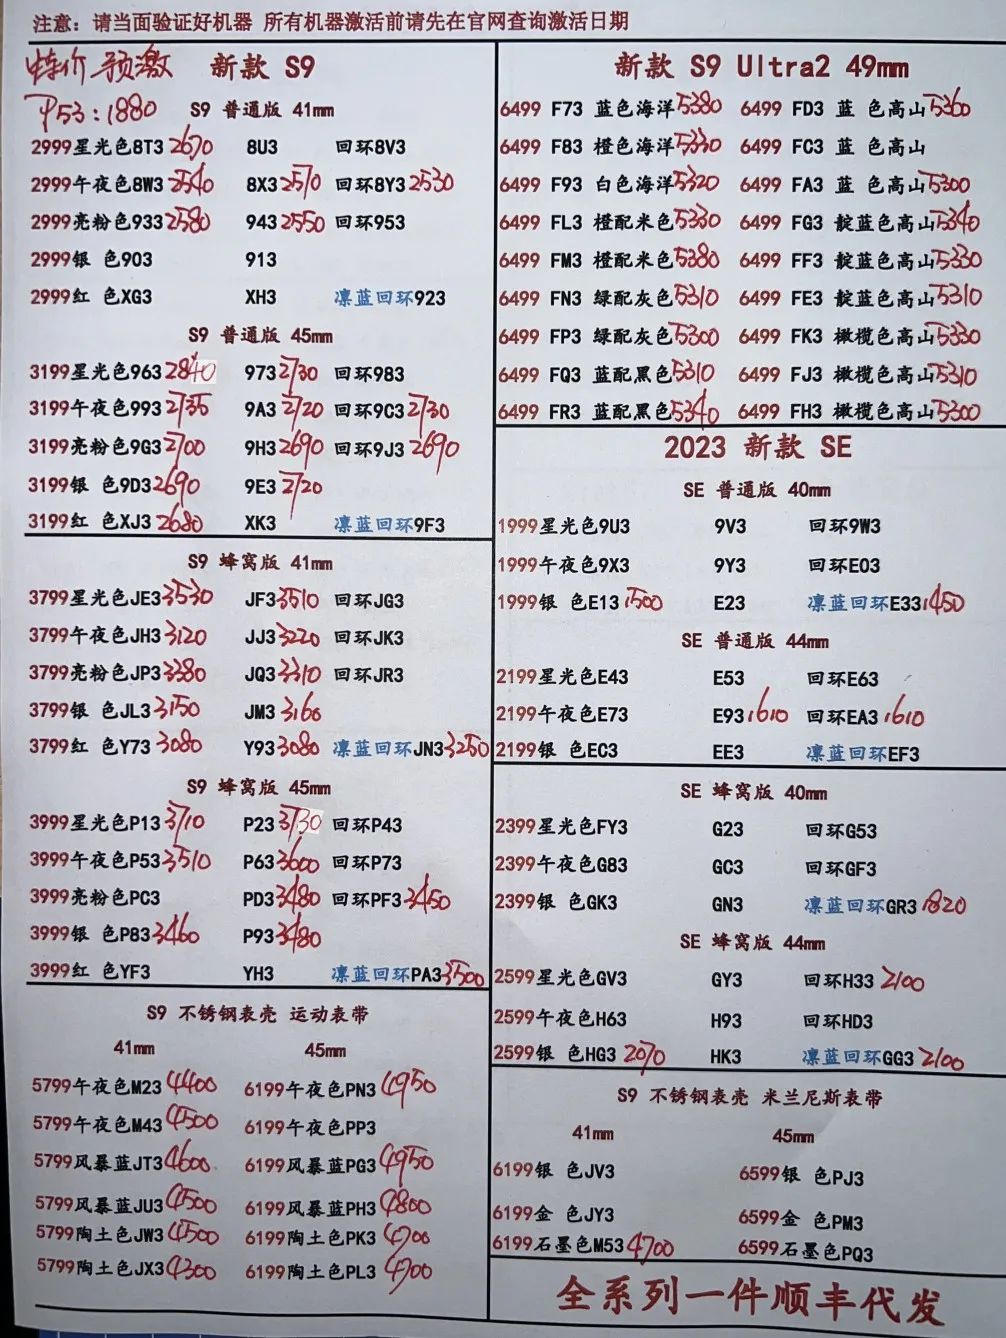 注意：请当面验证好机器 所有机器激活前请先在官网查询激活日期
特价 预激 新款 S9
P53：1880
S9 普通版 41mm
2999星光色8T3 2670 8U3 回环8V3
2999午夜色8W3 2540 8X3 2510 回环8Y3 2530
2999亮粉色933 2580 943 2550 回环953
2999银 色903 913
2999红 色XG3 XH3 凛蓝回环923
S9 普通版 45mm
3199星光色963 2840 973 2730 回环983
3199午夜色993 2735 9A3 2720 回环9C3 2730
3199亮粉色9G3 2700 9H3 2690 回环9J3 2690
3199银 色9D3 2690 9E3 2720
3199红 色XJ3 2680 XK3 凛蓝回环9F3
S9 蜂窝版 41mm
3799星光色JE3 3530 JF3 3510 回环JG3
3799午夜色JH3 3120 JJ3 3220 回环JK3
3799亮粉色JP3 3380 JQ3 3310 回环JR3
3799银 色JL3 3150 JM3 3160
3799红 色Y73 3080 Y93 3080 凛蓝回环JN3 3250
S9 蜂窝版 45mm
3999星光色P13 3710 P23 3730 回环P43
3999午夜色P53 3510 P63 3600 回环P73
3999亮粉色PC3 PD3 3480 回环PF3 3450
3999银 色P83 3460 P93 3480
3999红 色YF3 YH3 凛蓝回环PA3 3500
S9 不锈钢表壳 运动表带
41mm 45mm
5799午夜色M23 4400 6199午夜色PN3 4950
5799午夜色M43 4500 6199午夜色PP3
5799风暴蓝JT3 4600 6199风暴蓝PG3 4950
5799风暴蓝JU3 4500 6199风暴蓝PH3 4800
5799陶土色JW3 4500 6199陶土色PK3 4700
5799陶土色JX3 4300 6199陶土色PL3 4700
新款 S9 Ultra2 49mm
6499 F73 蓝色海洋5380 6499 FD3 蓝 色高山5360
6499 F83 橙色海洋5330 6499 FC3 蓝 色高山
6499 F93 白色海洋5320 6499 FA3 蓝 色高山5300
6499 FL3 橙配米色5330 6499 FG3 靛蓝色高山5340
6499 FM3 橙配米色5380 6499 FF3 靛蓝色高山5330
6499 FN3 绿配灰色5310 6499 FE3 靛蓝色高山5310
6499 FP3 绿配灰色5300 6499 FK3 橄榄色高山5330
6499 FQ3 蓝配黑色5310 6499 FJ3 橄榄色高山5310
6499 FR3 蓝配黑色5340 6499 FH3 橄榄色高山5300
2023 新款 SE
SE 普通版 40mm
1999星光色9U3 9V3 回环9W3
1999午夜色9X3 9Y3 回环E03
1999银 色E13 1500 E23 凛蓝回环E33 1450
SE 普通版 44mm
2199星光色E43 E53 回环E63
2199午夜色E73 E93 1610 回环EA3 1610
2199银 色EC3 EE3 凛蓝回环EF3
SE 蜂窝版 40mm
2399星光色FY3 G23 回环G53
2399午夜色G83 GC3 回环GF3
2399银 色GK3 GN3 凛蓝回环GR3 1820
SE 蜂窝版 44mm
2599星光色GV3 GY3 回环H33 2100
2599午夜色H63 H93 回环HD3
2599银 色HG3 2070 HK3 凛蓝回环GG3 2100
S9 不锈钢表壳 米兰尼斯表带
41mm 45mm
6199银 色JV3 6599银 色PJ3
6199金 色JY3 6599金 色PM3
6199石墨色M53 4700 6599石墨色PQ3
全系列一件顺丰代发